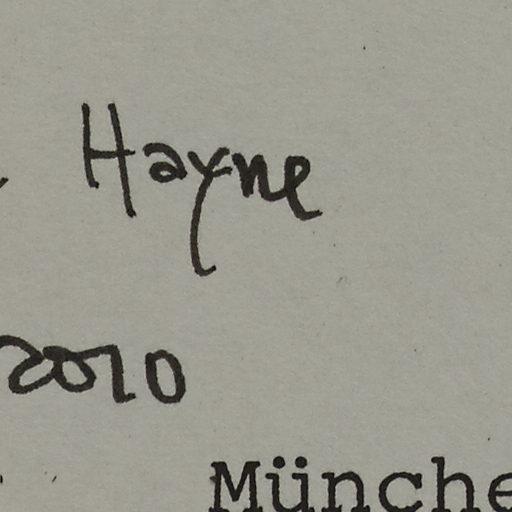 Hayne
2010
Münche